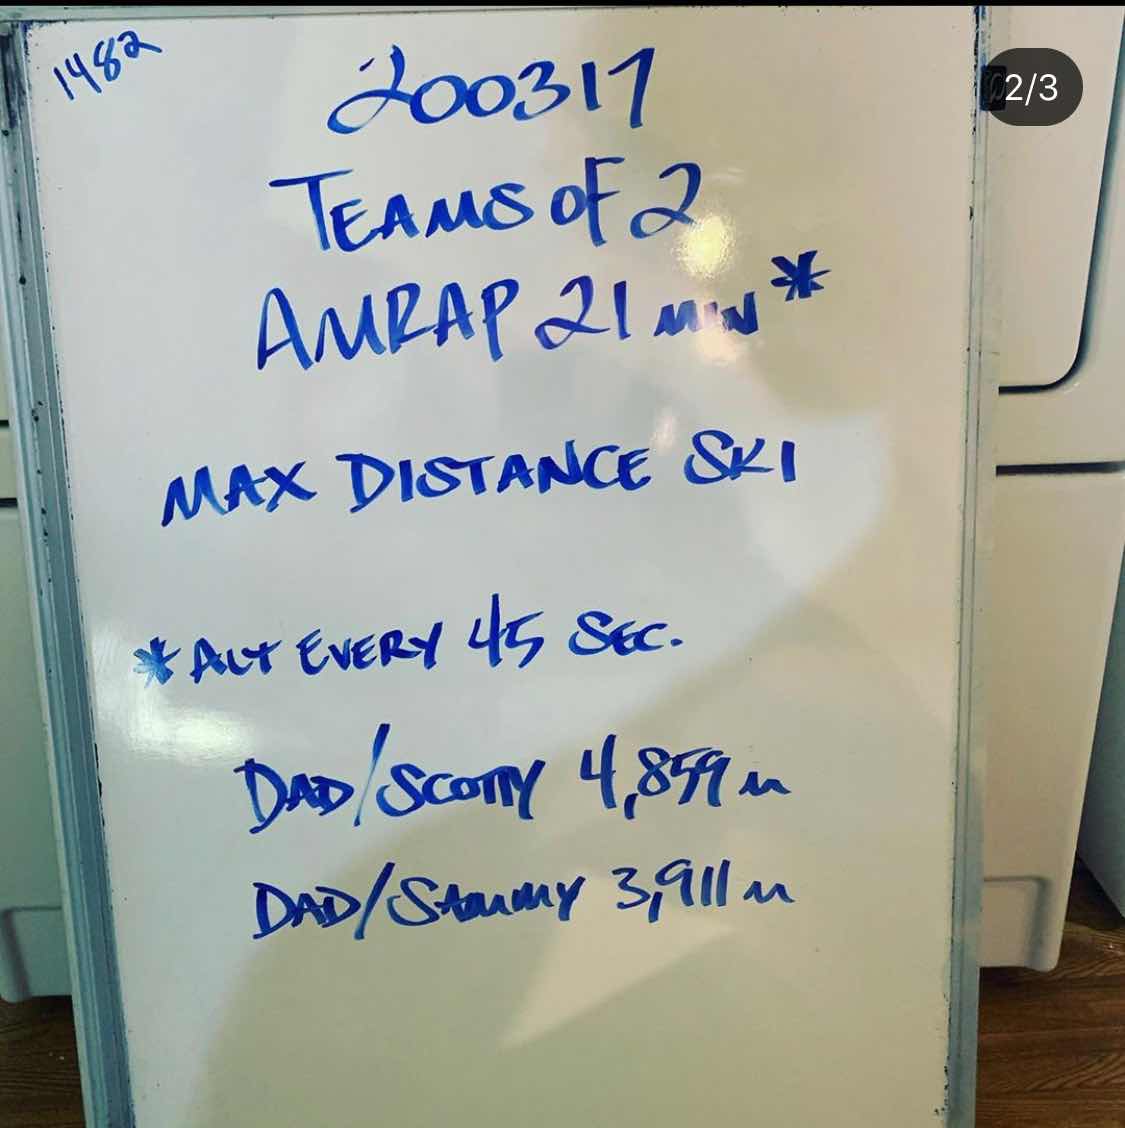 1482
200317
TEAMS OF 2
AMRAP 21 MIN *
MAX DISTANCE SKI
* ALT EVERY 45 SEC.
DAD/SCOTTY 4,859 m
DAD/SAMMY 3,911 m
2/3